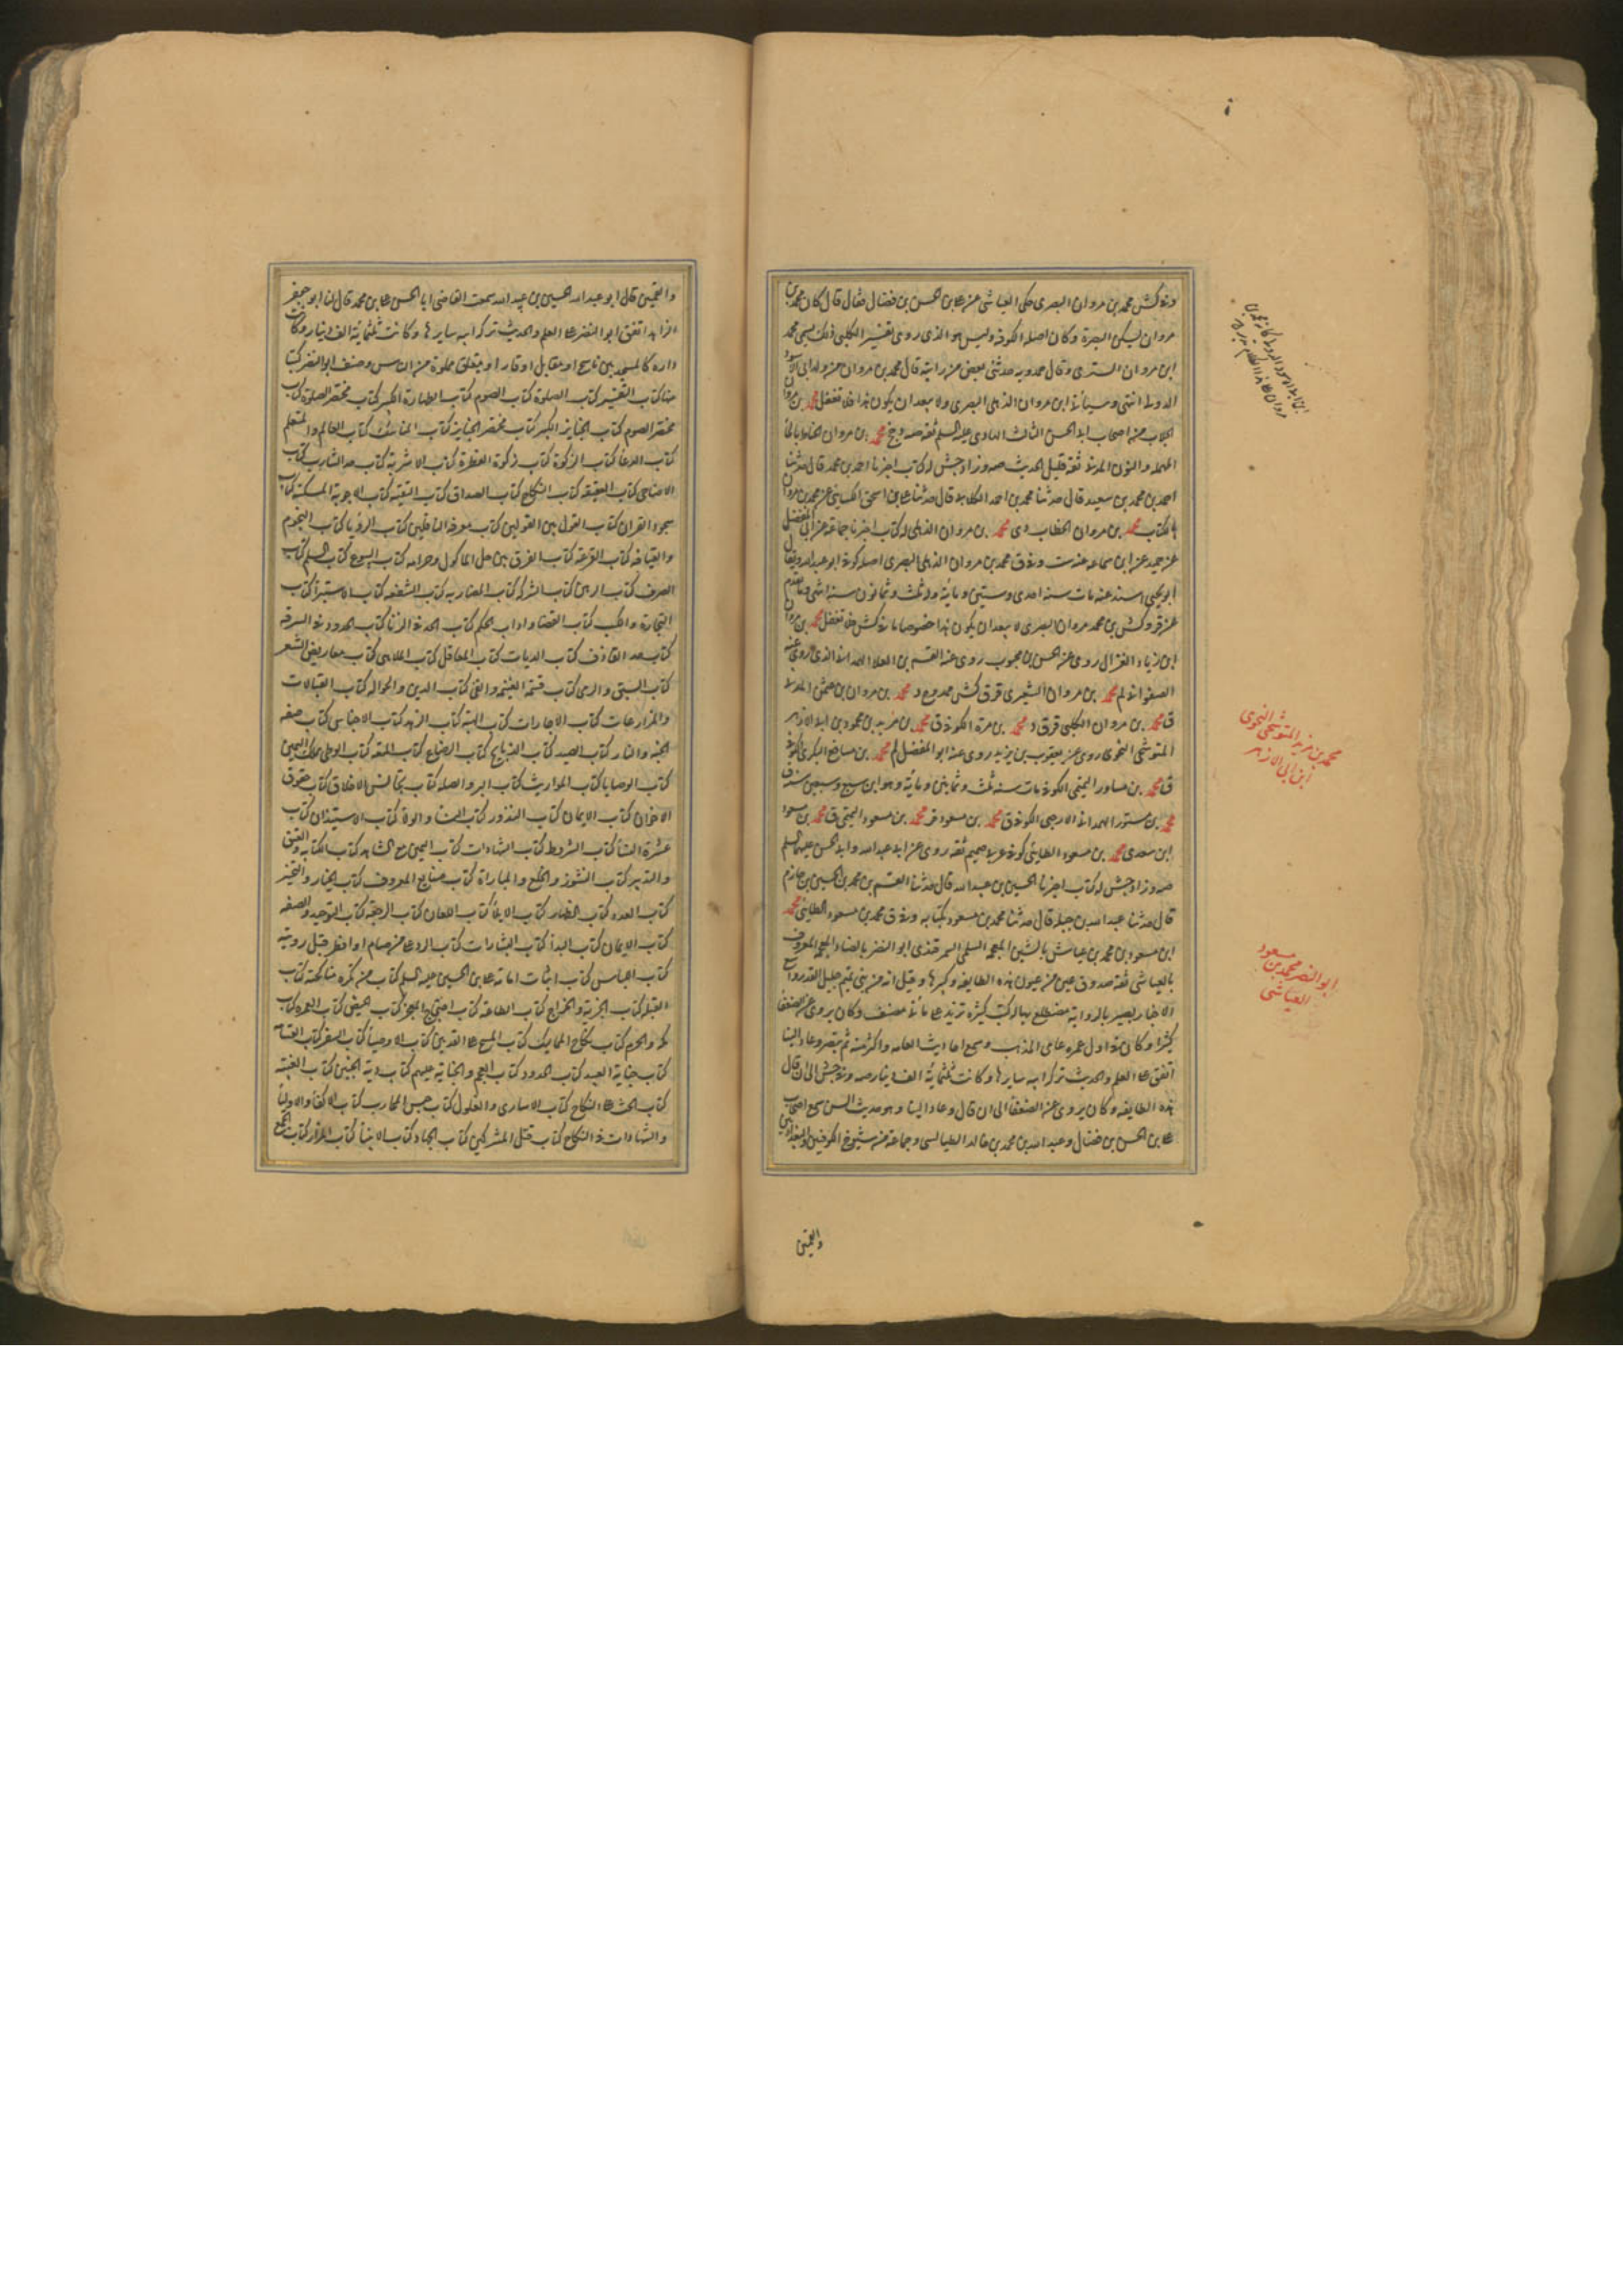 وفي كش محمد بن مروان البصري حكى العياشي عن علي بن الحسن بن فضال فقال قال كان محمد بن
مروان يسكن البصرة وكان اصله الكوفة وليس هو الذي روى تفسير الكلبي ذلك يسمى محمد
ابن مروان السدي وقال حمدويه حدثني بعض من رايته قال محمد بن مروان من ولد ابي الاسود
الدولي انتهى وسيأتي ابن مروان الذهلي البصري ولا يبعد ان يكون هذا فلا تغفل محمد بن مروان
الجلاب من اصحاب ابي الحسن الثالث الهادي عليه السلم ثقة صه دي جخ محمد بن مروان الحناط بالحاء
المهملة والنون المدني ثقة قليل الحديث صه وزاد جش له كتاب اخبرنا احمد بن محمد قال حدثنا
احمد بن محمد بن سعيد قال حدثنا محمد بن احمد الكلابي قال حدثنا علي بن اسحق الكسائي عن محمد بن مروان
بالكتاب محمد بن مروان الخطاب دي محمد بن مروان الذهلي له كتاب اخبرنا جماعة عن ابي المفضل
عن حميد عن ابن سماعة عنه ست وفي ق محمد بن مروان الذهلي البصري اصله كوفي ابو عبد الله ويقال
ابو يحيى اسند عنه مات سنة احدى وستين ومائة وله ثلث وثمانون سنة انتهى وما تقدم
عن قر وكش بن محمد مروان البصري لا يبعد ان يكون هذا خصوصا ما في كش فلا تغفل محمد بن مروان
ابن زياد الغزال روى عن الحسن بن محبوب روى عنه القسم بن العلا الهمداني الذي روى عنه
الصفواني لم محمد بن مروان الشعيري ق وفي كش ممدوح و محمد بن مروان بن عثمن المدني
ق محمد بن مروان الكلبي قر ق د محمد بن مرة الكوفي ق محمد بن مزيد بن محمود بن ابي الازهر
المتوشحي النحوي روى عن يعقوب بن يزيد روى عنه ابو المفضل لم محمد بن مسافع البكري الكوفي
ق محمد بن مساور التميمي الكوفي مات سنة ثلث وثمانين ومائة وهو ابن سبع وسبعين سنة ق
محمد بن مستور الهمداني الارحبي الكوفي ق محمد بن مسعود قر محمد بن مسعود التميمي ق محمد بن مسعود
ابن سعدى محمد بن مسعود الطائي كوفي عربي صميم ثقة روى عن ابي عبد الله وابي الحسن عليهما السلم
صه وزاد جش له كتاب اخبرنا الحسين بن عبيد الله قال حدثنا القسم بن محمد بن الحسين بن حازم
قال حدثنا عبد الله بن جبلة قال حدثنا محمد بن مسعود بكتابه وفي ق محمد بن مسعود الطائي محمد
ابن مسعود بن محمد بن عياش بالشين المعجمة السلمي السمرقندي ابو النضر بالضاد المعجمة المعروف
بالعياشي ثقة صدوق عين من عيون هذه الطائفة وكبيرها وقيل انه من بني تميم جليل القدر واسع
الاخبار بصير بالرواية مضطلع بها له كتب كثيرة تزيد على مائتي مصنف وكان يروي عن الضعفا
كثيرا وكان في اول عمره عامي المذهب وسمع احاديث العامة واكثر منه ثم تبصر وعاد الينا
انفق على العلم والحديث تركة ابيه سايرها وكانت ثلثمائة الف دينار صه وفي جش الى ان قال
هذه الطايفة وكان يروي عن الضعفا الى ان قال وعاد الينا وهو حديث السن سمع اصحاب
علي بن الحسن بن فضال وعبد الله بن محمد بن خالد الطيالسي وجماعة من شيوخ الكوفيين والبغداديين
والقميين
محمد بن مزيد المتوشحي النحوي
ابن ابي الازهر
ابو النضر محمد بن مسعود
العياشي
والقميين قال ابو عبد الله الحسين بن عبيد الله سمعت القاضي ابا الحسن علي بن محمد قال لنا ابو جعفر
الزاهد انفق ابو النضر على العلم والحديث تركة ابيه سايرها وكانت ثلثماية الف دينار وكانت
داره كالمسجد بين ناسخ او مقابل او قار او معلق مملوة من الناس وصنف ابو النضر كتبا
منها كتاب التفسير كتاب الصلوة كتاب الصوم كتاب الطهارة الكبير كتاب مختصر الصلوة كتاب
مختصر الصوم كتاب الجنايز الكبير كتاب مختصر الجنايز كتاب المناسك كتاب العالم والمتعلم
كتاب الدعا كتاب الزكوة كتاب زكوة الفطرة كتاب الاشربة كتاب حد الشارب كتاب
الاضاحي كتاب العقيقة كتاب النكاح كتاب الصداق كتاب التقية كتاب الاجوبة المسكتة كتاب
سجود القران كتاب القول بين القولين كتاب معرفة الناقلين كتاب الرؤيا كتاب النجوم
والقيافة كتاب القرعة كتاب الفرق بين حل الماكول وحرامه كتاب البيوع كتاب السلم كتاب
الصرف كتاب الرهن كتاب الشركة كتاب المضاربه كتاب الشفعه كتاب الاستبرا كتاب
التجارة والكسب كتاب القضا واداب الحكم كتاب الحد في الزنا كتاب الحدود في السرقة
كتاب حد القاذف كتاب الديات كتاب المعاقل كتاب الملاهي كتاب معاريض الشعر
كتاب السبق والرمي كتاب قسمة الغنيمة والفئ كتاب الدين والحواله كتاب القبالات
والمزارعات كتاب الاجارات كتاب الهبة كتاب الزهد كتاب الاجناس كتاب صفه
الجنة والنار كتاب الصيد كتاب الذبايح كتاب الرضاع كتاب المتعة كتاب الوطي بملك اليمين
كتاب الوصايا كتاب المواريث كتاب البر والصله كتاب محاسن الاخلاق كتاب حقوق
الاخوان كتاب الايمان كتاب النذور كتاب النسا والولا كتاب الاستيذان كتاب
عشرة النسا كتاب الشروط كتاب الشهادات كتاب اليمين مع الشاهد كتاب الكتابه والعتق
والتدبير كتاب النشوز والخلع والمباراة كتاب صنايع المعروف كتاب الخيار والتخيير
كتاب العدد كتاب الظهار كتاب الايلا كتاب اللعان كتاب الرجعة كتاب التوحيد والصفه
كتاب الايمان كتاب البدا كتاب البشارات كتاب الرد على من صام او افطر قبل رويته
كتاب اللباس كتاب اثبات امامة علي بن الحسين عليه السلم كتاب من تكره مناكحته كتاب
القبله كتاب الجزية والخراج كتاب الطاعة كتاب احتجاج المعجز كتاب الحيض كتاب العمره كتاب
مكه والحرم كتاب نكاح المماليك كتاب المسح على القدمين كتاب الاوصيا كتاب السفر كتاب القسامه
كتاب جناية العبيد كتاب الحدود كتاب العجم والجناية عليهم كتاب دية الجنين كتاب الغيبة
كتاب الحث على النكاح كتاب الاسارى والغلول كتاب حبس المحارب كتاب الاكفا والاوليا
والشهادات في النكاح كتاب قتل المشركين كتاب الجهاد كتاب الانبيا كتاب المزار كتاب الجمع